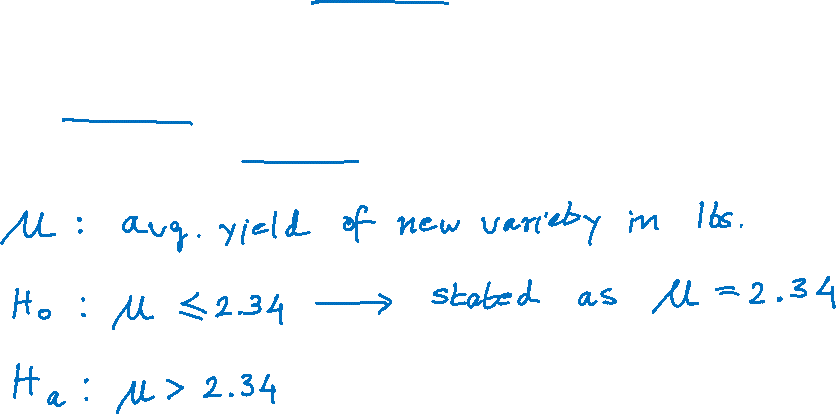 μ : avg. yield of new variety in lbs.
H₀ : μ ≤ 2.34 ⟶ stated as μ = 2.34
Hₐ : μ > 2.34